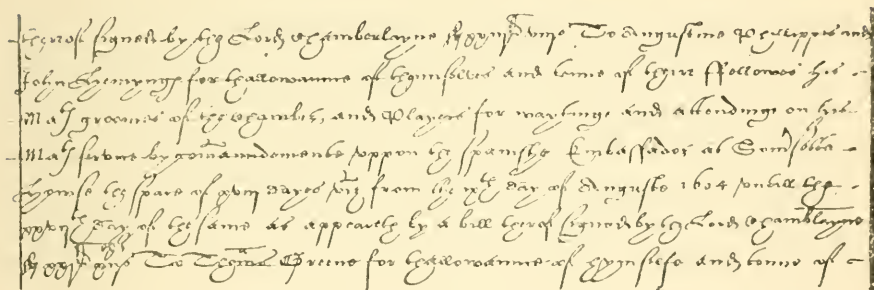 therof signed by the Lord Chamberlayne To Augustine Phillippes and
John Hemynges for thallowaunce of themselves and tenne of their ffellowes his
Mats groomes of the chamber, and Players for waytinge and attendinge on his
Mats service by comaundemente vppon the Spanishe Embassador at Somersette
howse the space of xviij dayes vizt from the ixth day of Auguste 1604 vntill the
xxvijth day of the same as appeareth by a bill therof signed by the Lord Chamblayne
To Thomas Greene for thallowaunce of hymselfe and tenne of